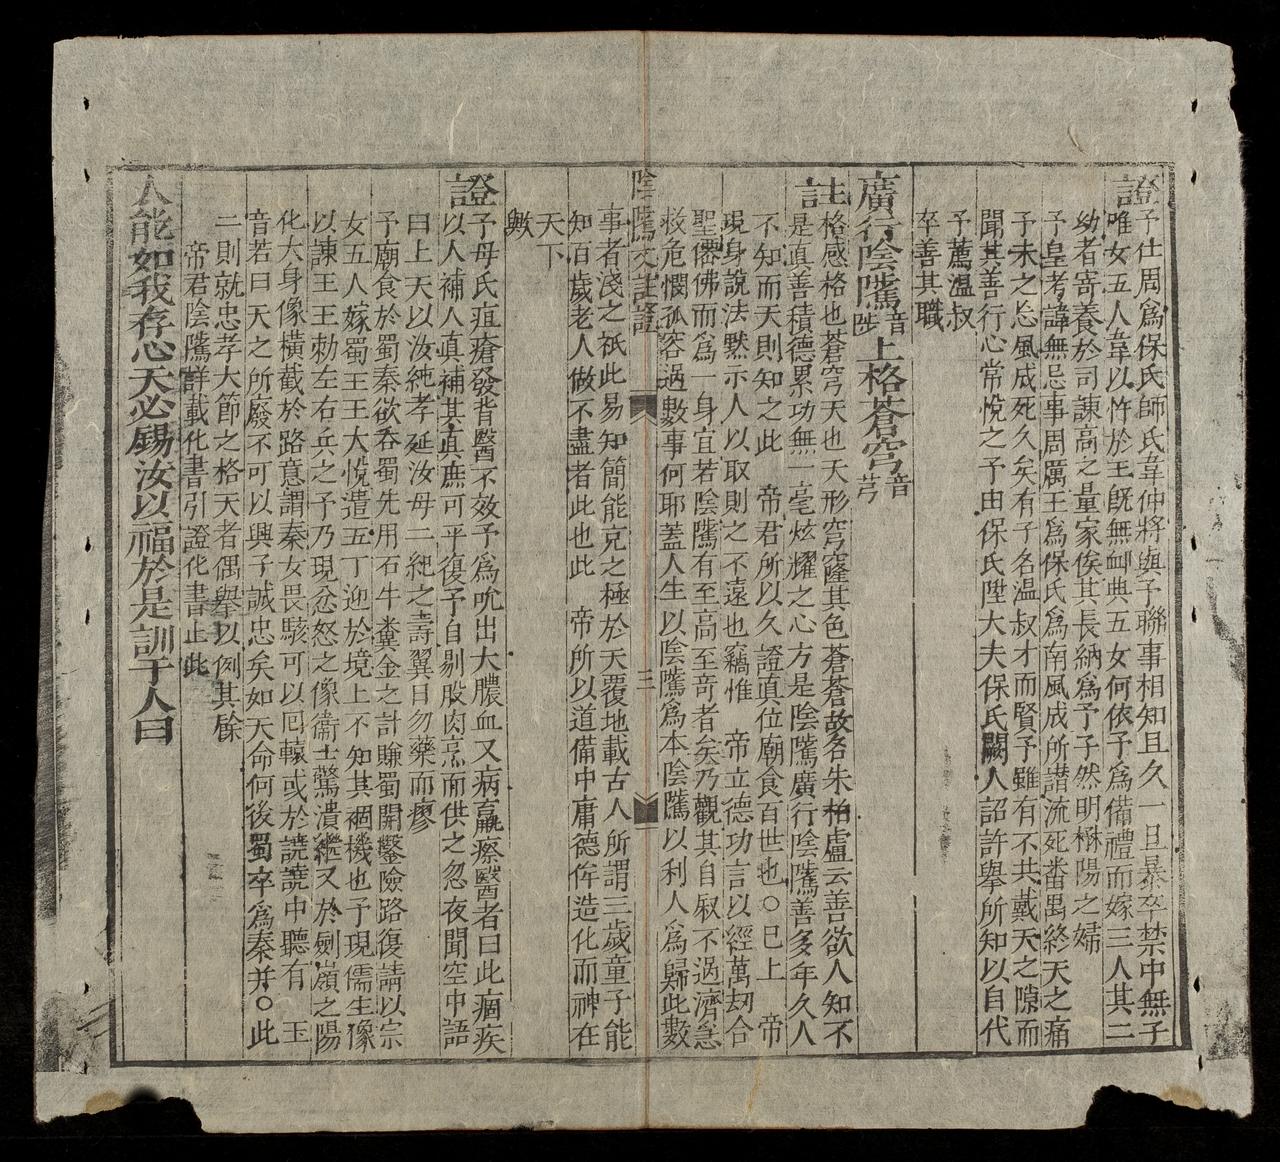 證予仕周爲保氏師氏韋仲將與予聯事相知且久一旦暴卒禁中無子
唯女五人韋以忤於王旣無卹典五女何依予爲備禮而嫁三人其二
幼者寄養於司諫高之量家俟其長納爲予子然明楙陽之婦
予皇考諱無忌事周厲王爲保氏爲南風成所譖流死番禺終天之痛
予未之忘風成死久矣有子名溫叔才而賢予雖有不共戴天之隙而
聞其善行心常悅之予由保氏陞大夫保氏闕人詔許擧所知以自代
予薦溫叔
卒善其職
廣行陰隲音陟上格蒼穹音芎
註格感格也蒼穹天也天形穹窿其色蒼蒼故名朱柏盧云善欲人知不
是眞善積德累功無一毫炫耀之心方是陰隲廣行陰隲善多年久人
不知而天則知之此 帝君所以久證眞位廟食百世也○已上 帝
現身說法黙示人以取則之不遠也竊惟 帝立德功言以經萬刼合
聖僊佛而爲一身宜若陰隲有至高至奇者矣乃觀其自叙不過濟急
救危憫孤容過數事何耶蓋人生以陰隲爲本陰隲以利人爲歸此數
陰隲文註證 三
事者淺之祇此易知簡能克之極於天覆地載古人所謂三歲童子能
知百歲老人做不盡者此也此 帝所以道備中庸德侔造化而神在
天下
歟
證予母氏疽瘡發背醫不效予爲吮出大膿血又病羸瘵醫者曰此痼疾
以人補人眞補其眞庶可平復予自剔股肉烹而供之忽夜聞空中語
曰上天以汝純孝延汝母二紀之壽翼日勿藥而廖
予廟食於蜀秦欲吞蜀先用石牛糞金之計賺蜀開鑿險路復請以宗
女五人嫁蜀王王大悅遣五丁迎於境上不知其禍機也予現儒生像
以諫王王勅左右兵之予乃現忿怒之像衞士驚潰繼又於劍嶺之陽
化大身像橫截於路意謂秦女畏駭可以囘轅或於譊譊中聽有 玉
音若曰天之所廢不可以興子誠忠矣如天命何後蜀卒爲秦并○此
二則就忠孝大節之格天者偶舉以例其餘
帝君陰隲詳載化書引證化書止此
人能如我存心天必錫汝以福於是訓于人曰